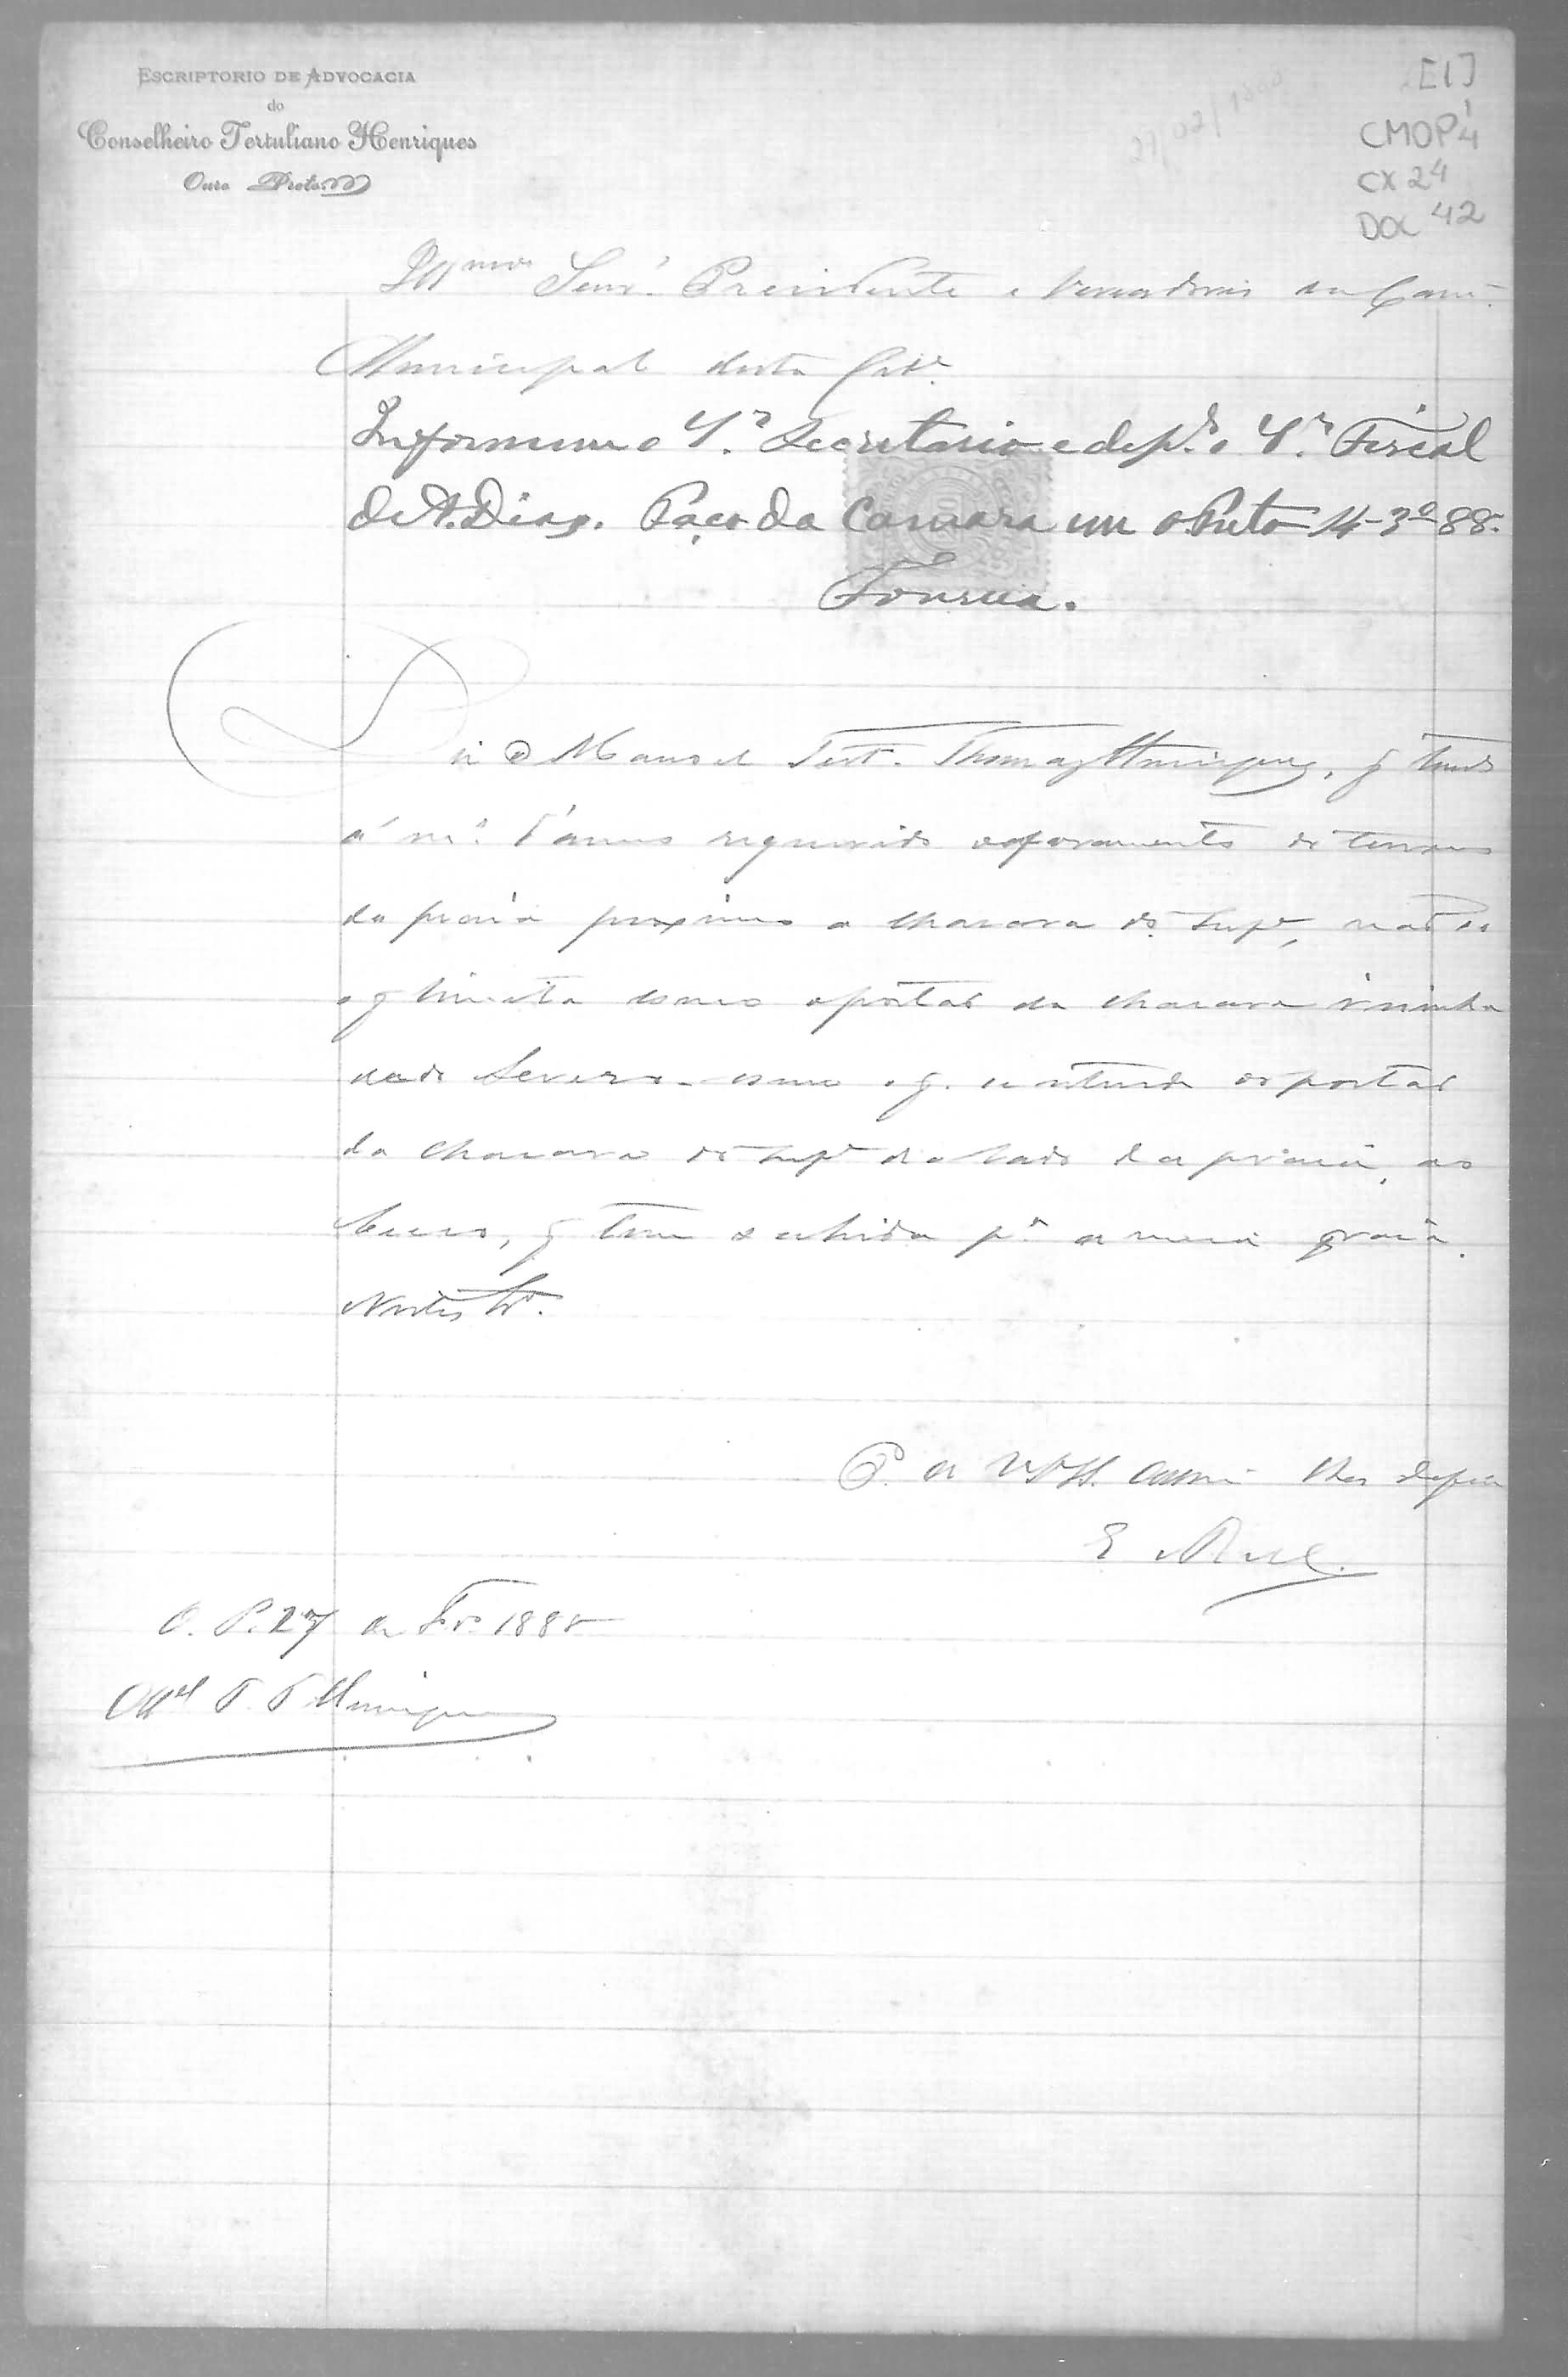 ESCRIPTORIO DE ADVOCACIA
do
Conselheiro Tertuliano Henriques
Ouro Preto
27/02/1888
[1]
CMOP 4
CX 24
DOC 42
Illmos Senrs. Presidente e Vereadores da Cam.
Municipal desta Cide.
Informem o Sr. Secretario e dep.s o Sr. Fiscal
de A. Dias. Paço da Camara em O Preto 14-3º-88.
Fonseca.
Diz Manoel Tert. Thomaz Henriques, q tendo
á annos requerido aforamento de terrenos
da praia proximo a chacara do Supe, não se
o q limita como o portão da chacara visinha
de Severo como o q. se entende do portão
da chacara do Supe do lado da praia, ao
becco, q tem sahida pa a mesma praia.
Nestes
P. a VV. SS. assim lhes defira
E. R. Me.
O. P. 27 de Fevo. 1888
Mel T. T Henriques